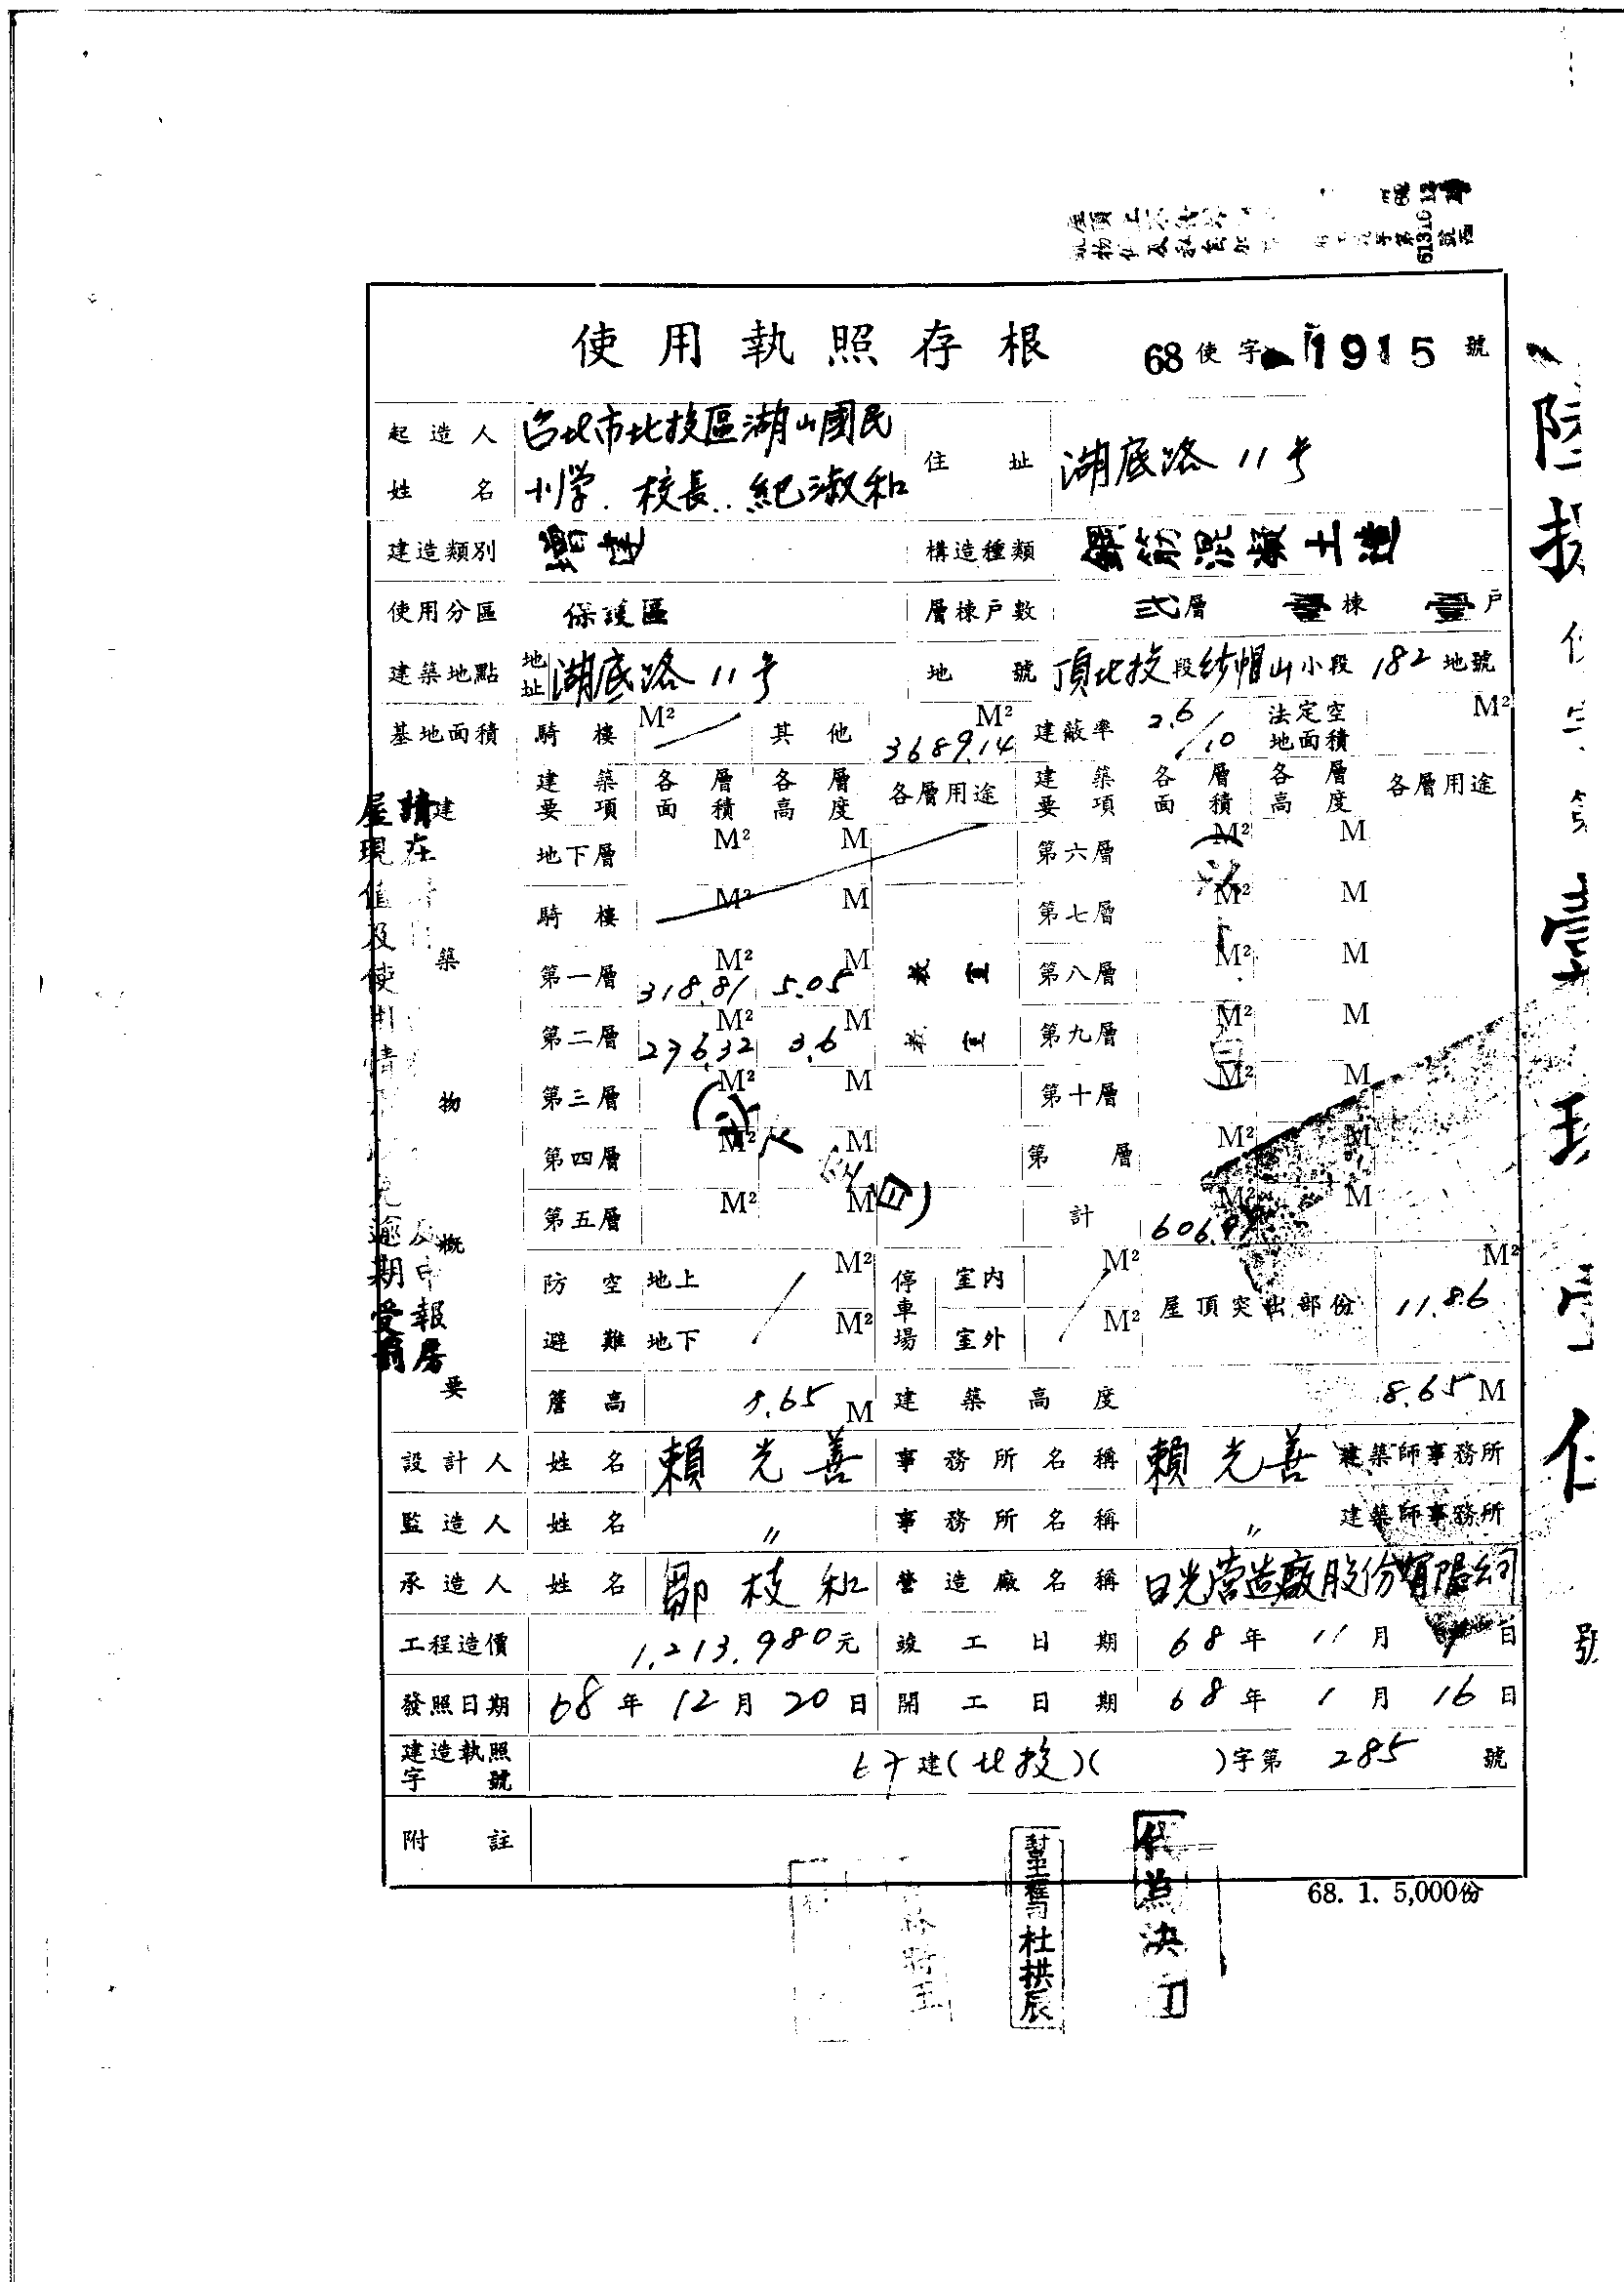 使用執照存根 68使字 1915 號
起造人姓名 台北市北投區湖山國民小学.校長..紀淑和 住址 湖底路11号
建造類別 增建 構造種類 鋼筋混凝土造
使用分區 保護區 層棟戶數 弍層 壹棟 壹戶
建築地點 地址 湖底路11号 地號 頂北投段紗帽山小段182地號
基地面積 騎樓 M² 其他 3689.14 M² 建蔽率 2.6/10 法定空地面積 M²
建築物概要
建築要項 各層面積 各層高度 各層用途 建築要項 各層面積 各層高度 各層用途
地下層 M² M 第六層 M² M
騎樓 M² M 第七層 M² M
第一層 318.81 M² 5.05 M 教室 第八層 M² M
第二層 276.32 M² 3.6 M 教室 第九層 M² M
第三層 M² M 第十層 M² M
第四層 M² M 第 層 M² M
第五層 M² M 計 M² M
防空避難 地上 M² 停車場 室內 M² 屋頂突出部份 11.86 M²
地下 M² 室外 M²
簷高 8.65 M 建築高度 8.65 M
設計人 姓名 賴光善 事務所名稱 賴光善 建築師事務所
監造人 姓名 〃 事務所名稱 〃 建築師事務所
承造人 姓名 鄒枝和 營造廠名稱 日光营造廠股份有限公司
工程造價 1,213,980元 竣工日期 68年11月 日
發照日期 68年12月20日 開工日期 68年1月16日
建造執照字號 67建(北投)( )字第285號
附註
68. 1. 5,000份
杜拱辰
代為決行